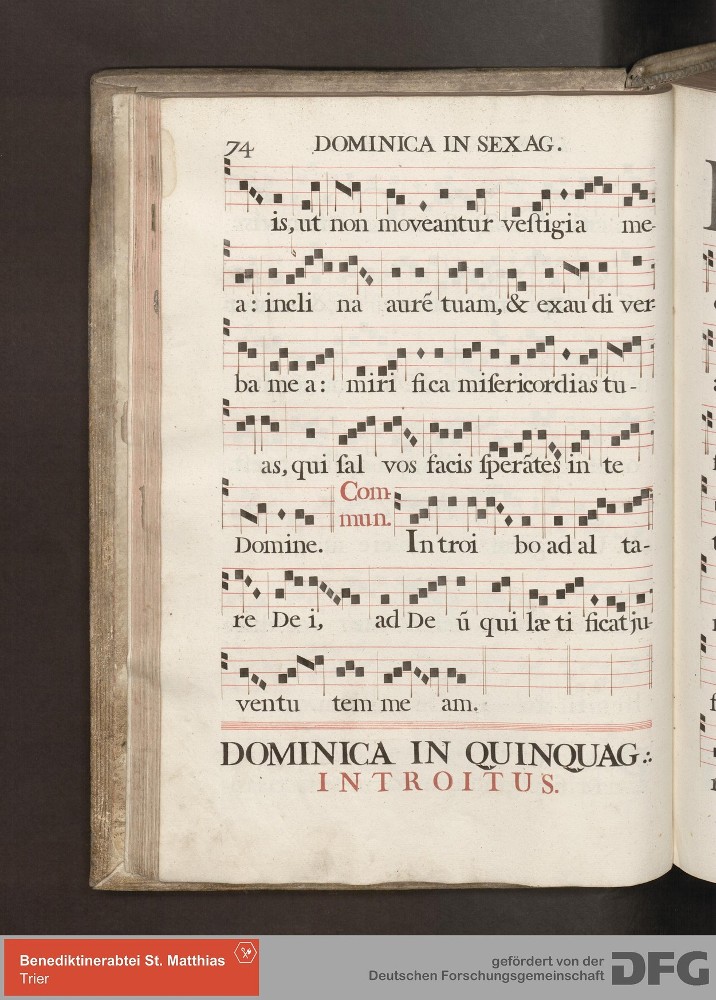 74 DOMINICA IN SEXAG.
is, ut non moveantur veſtigia me-
a: incli na aurẽ tuam, & exau di ver-
ba me a: miri fica miſericordias tu-
as, qui ſal vos facis ſperãtes in te
Com-
mun.
Domine. In troi bo ad al ta-
re De i, ad De ũ qui læ ti ficat ju-
ventu tem me am.
DOMINICA IN QUINQUAG.:
INTROITUS.
Benediktinerabtei St. Matthias
Trier
gefördert von der
Deutschen Forschungsgemeinschaft
DFG